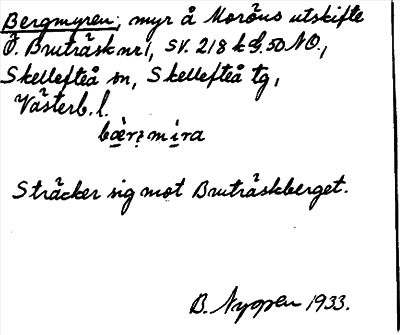 Bergmyren, myr å Moröns utskifte
Ö. Bruträsk nr 1, SV. 218 k L. 50 NO.,
Skellefteå sn, Skellefteå tg,
Västerb. l.
bæ̀r̥mira
Sträcker sig mot Bruträskberget.
B. Nygren 1933.